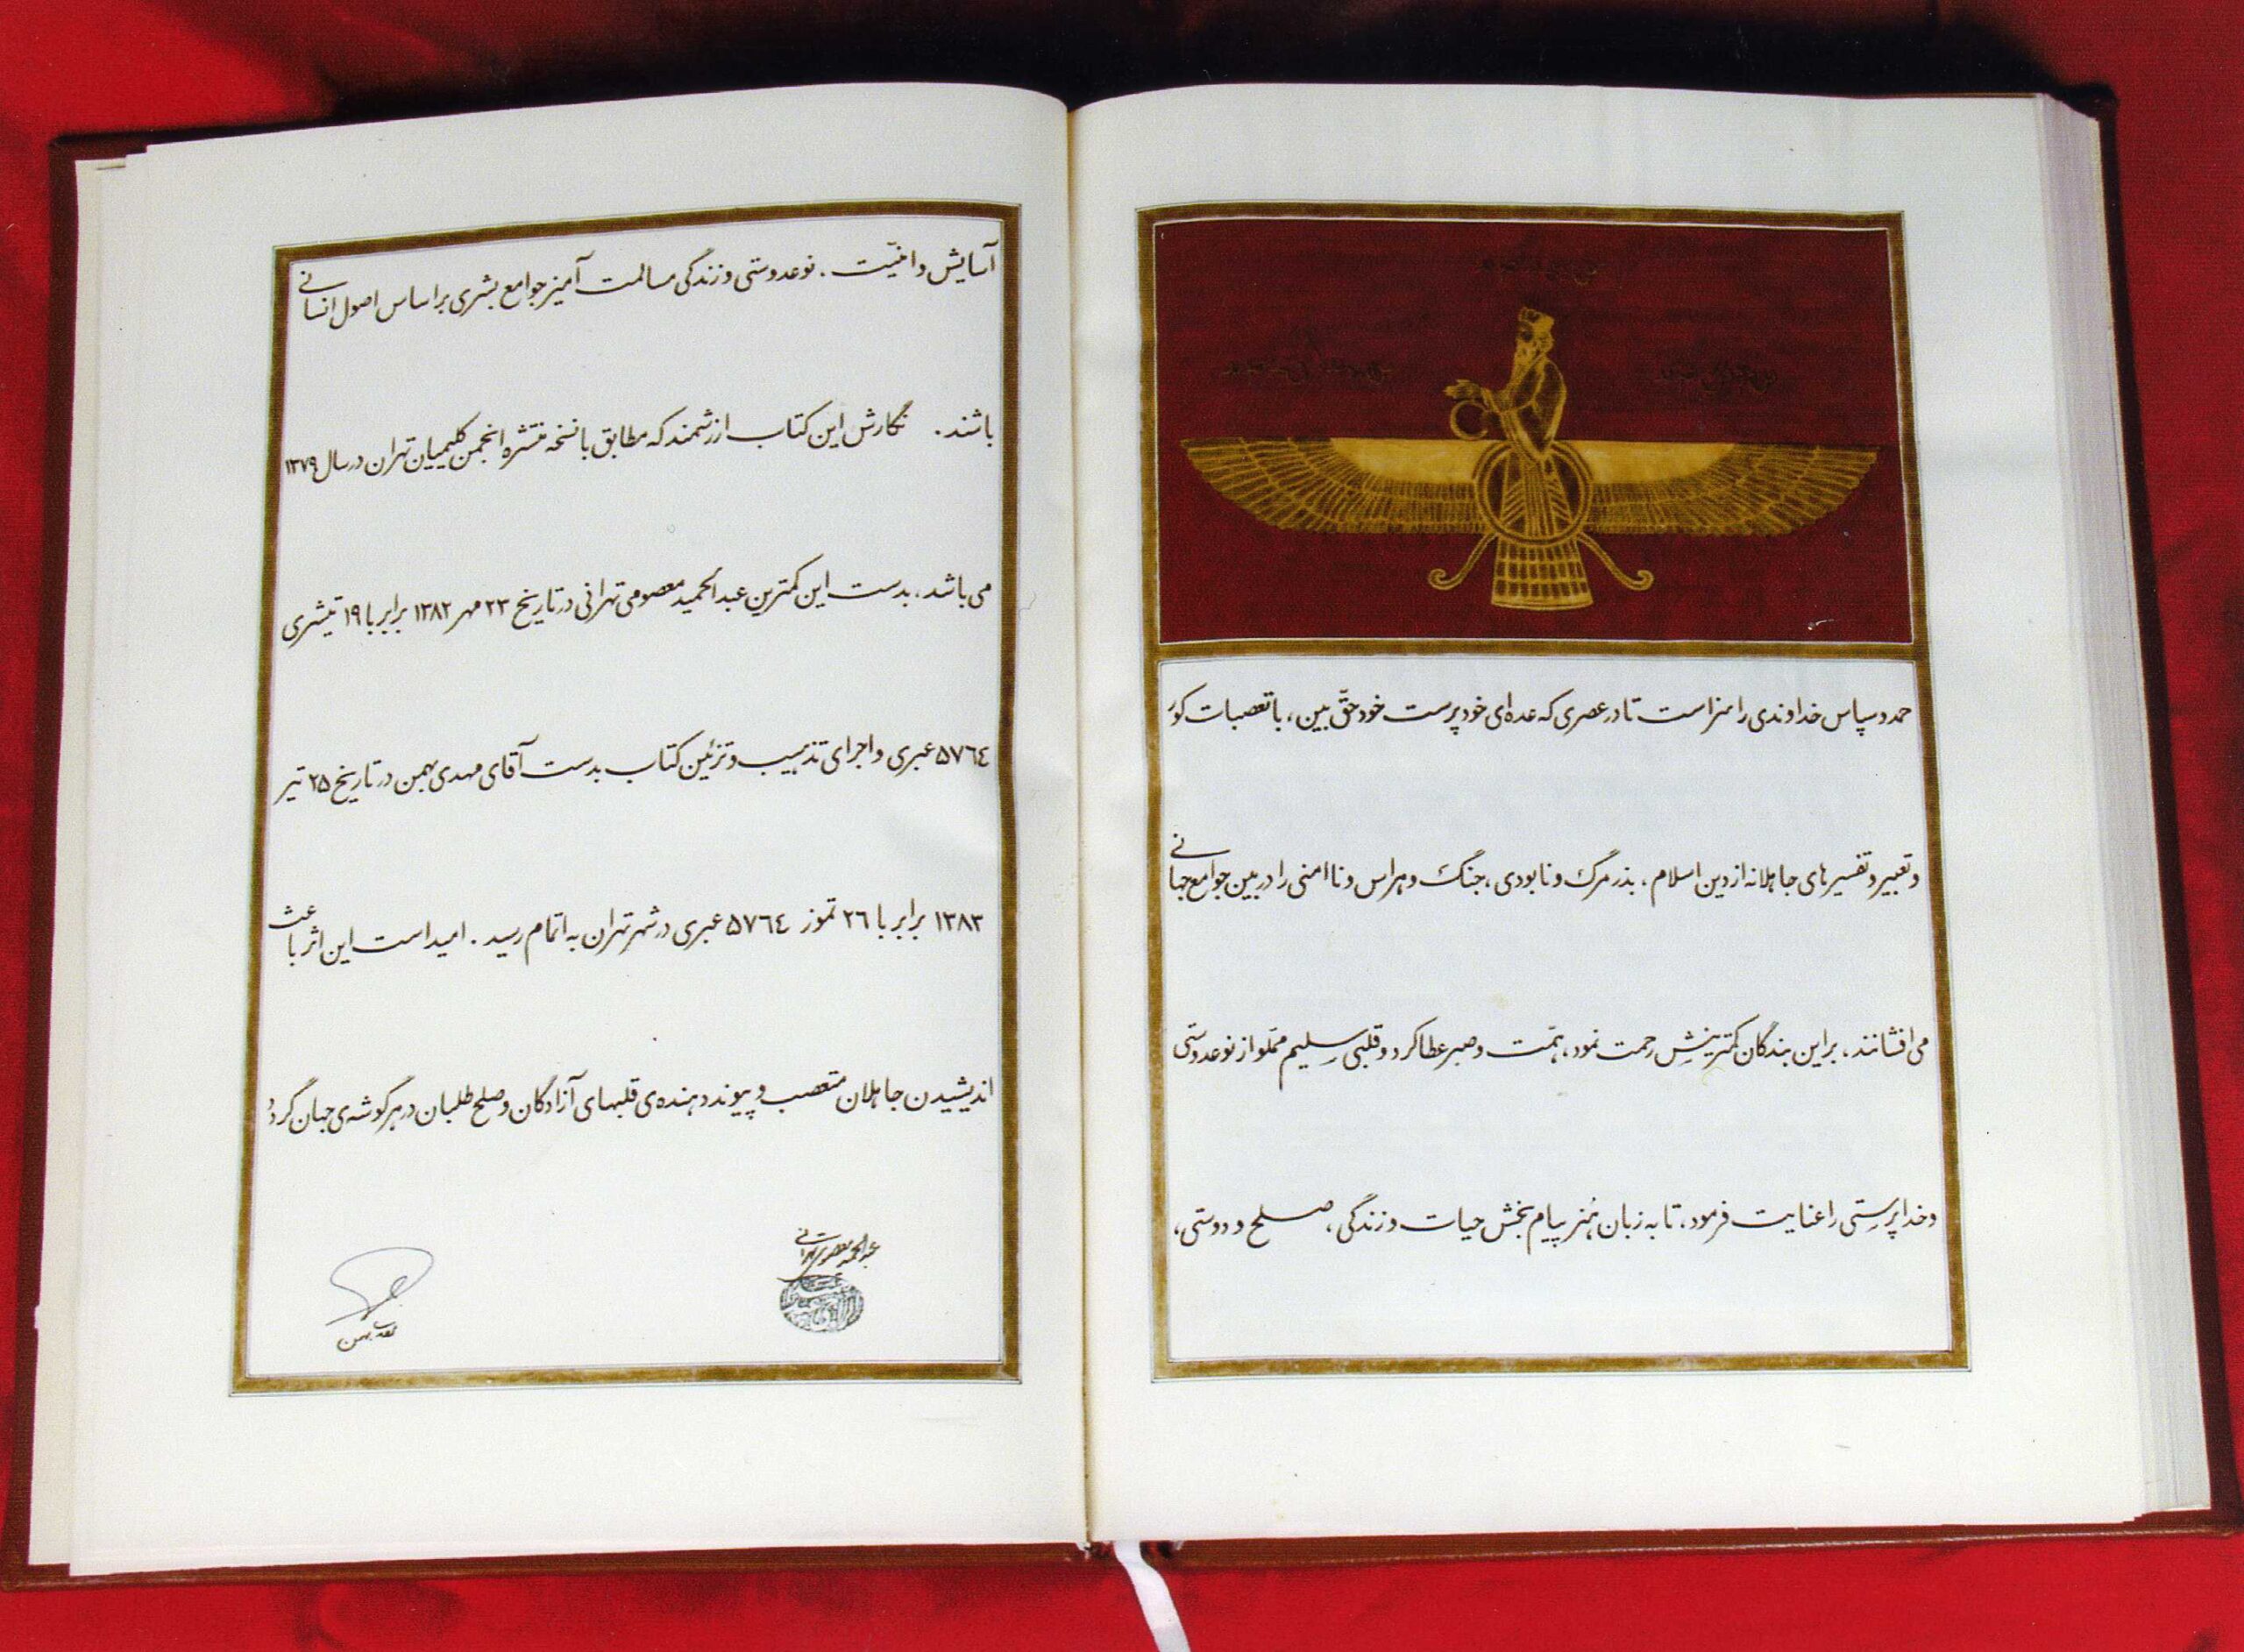 حمد و سپاس خداوندی را سزاست تا در عصری که عده‌ای خودپرست خود حقّ بین، با تعصبات کور
و تعبیر و تفسیرهای جاهلانه از دین اسلام، بذر مرگ و نابودی، جنگ و هراس و ناامنی را در بین جوامع جهانی
می‌افشانند، بر این بندگان کمترینش رحمت نمود، همّت و صبر عطا کرد و قلبی سلیم مملو از نوعدوستی
و خداپرستی را عنایت فرمود، تا به زبان هُنر پیام بخش حیات و زندگی، صلح و دوستی،
آسایش و امنیّت، نوعدوستی و زندگی مسالمت آمیز جوامع بشری بر اساس اصول انسانی
باشند. نگارش این کتاب ارزشمند که مطابق با نسخه منتشره انجمن کلیمیان تهران در سال ۱۳۷۹
می‌باشد، بدست این کمترین عبدالحمید معصومی تهرانی در تاریخ ۲۳ مهر ۱۳۸۲ برابر با ۱۹ تیشری
۵۷۶٤ عبری و اجرای تذهیب و تزئین کتاب بدست آقای مهدی بهمن در تاریخ ۲۵ تیر
۱۳۸۳ برابر با ۲٦ تموز ۵۷٦٤ عبری در شهر تهران به اتمام رسید. امید است این اثر باعث
اندیشیدن جاهلان متعصب و پیوند دهنده‌ی قلبهای آزادگان و صلح طلبان در هر گوشه‌ی جهان گردد
عبدالحمید معصومی تهرانی
بهمن